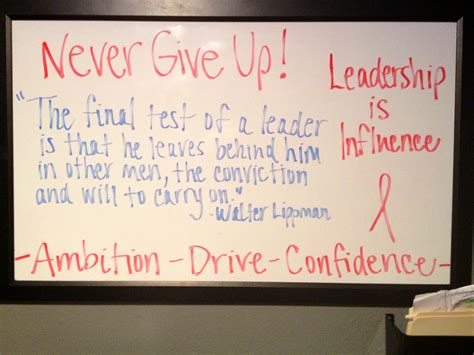 Never Give Up!
"The final test of a leader
is that he leaves behind him
in other men, the conviction
and will to carry on."
-Walter Lippman
Leadership
is
Influence
-Ambition-Drive-Confidence-